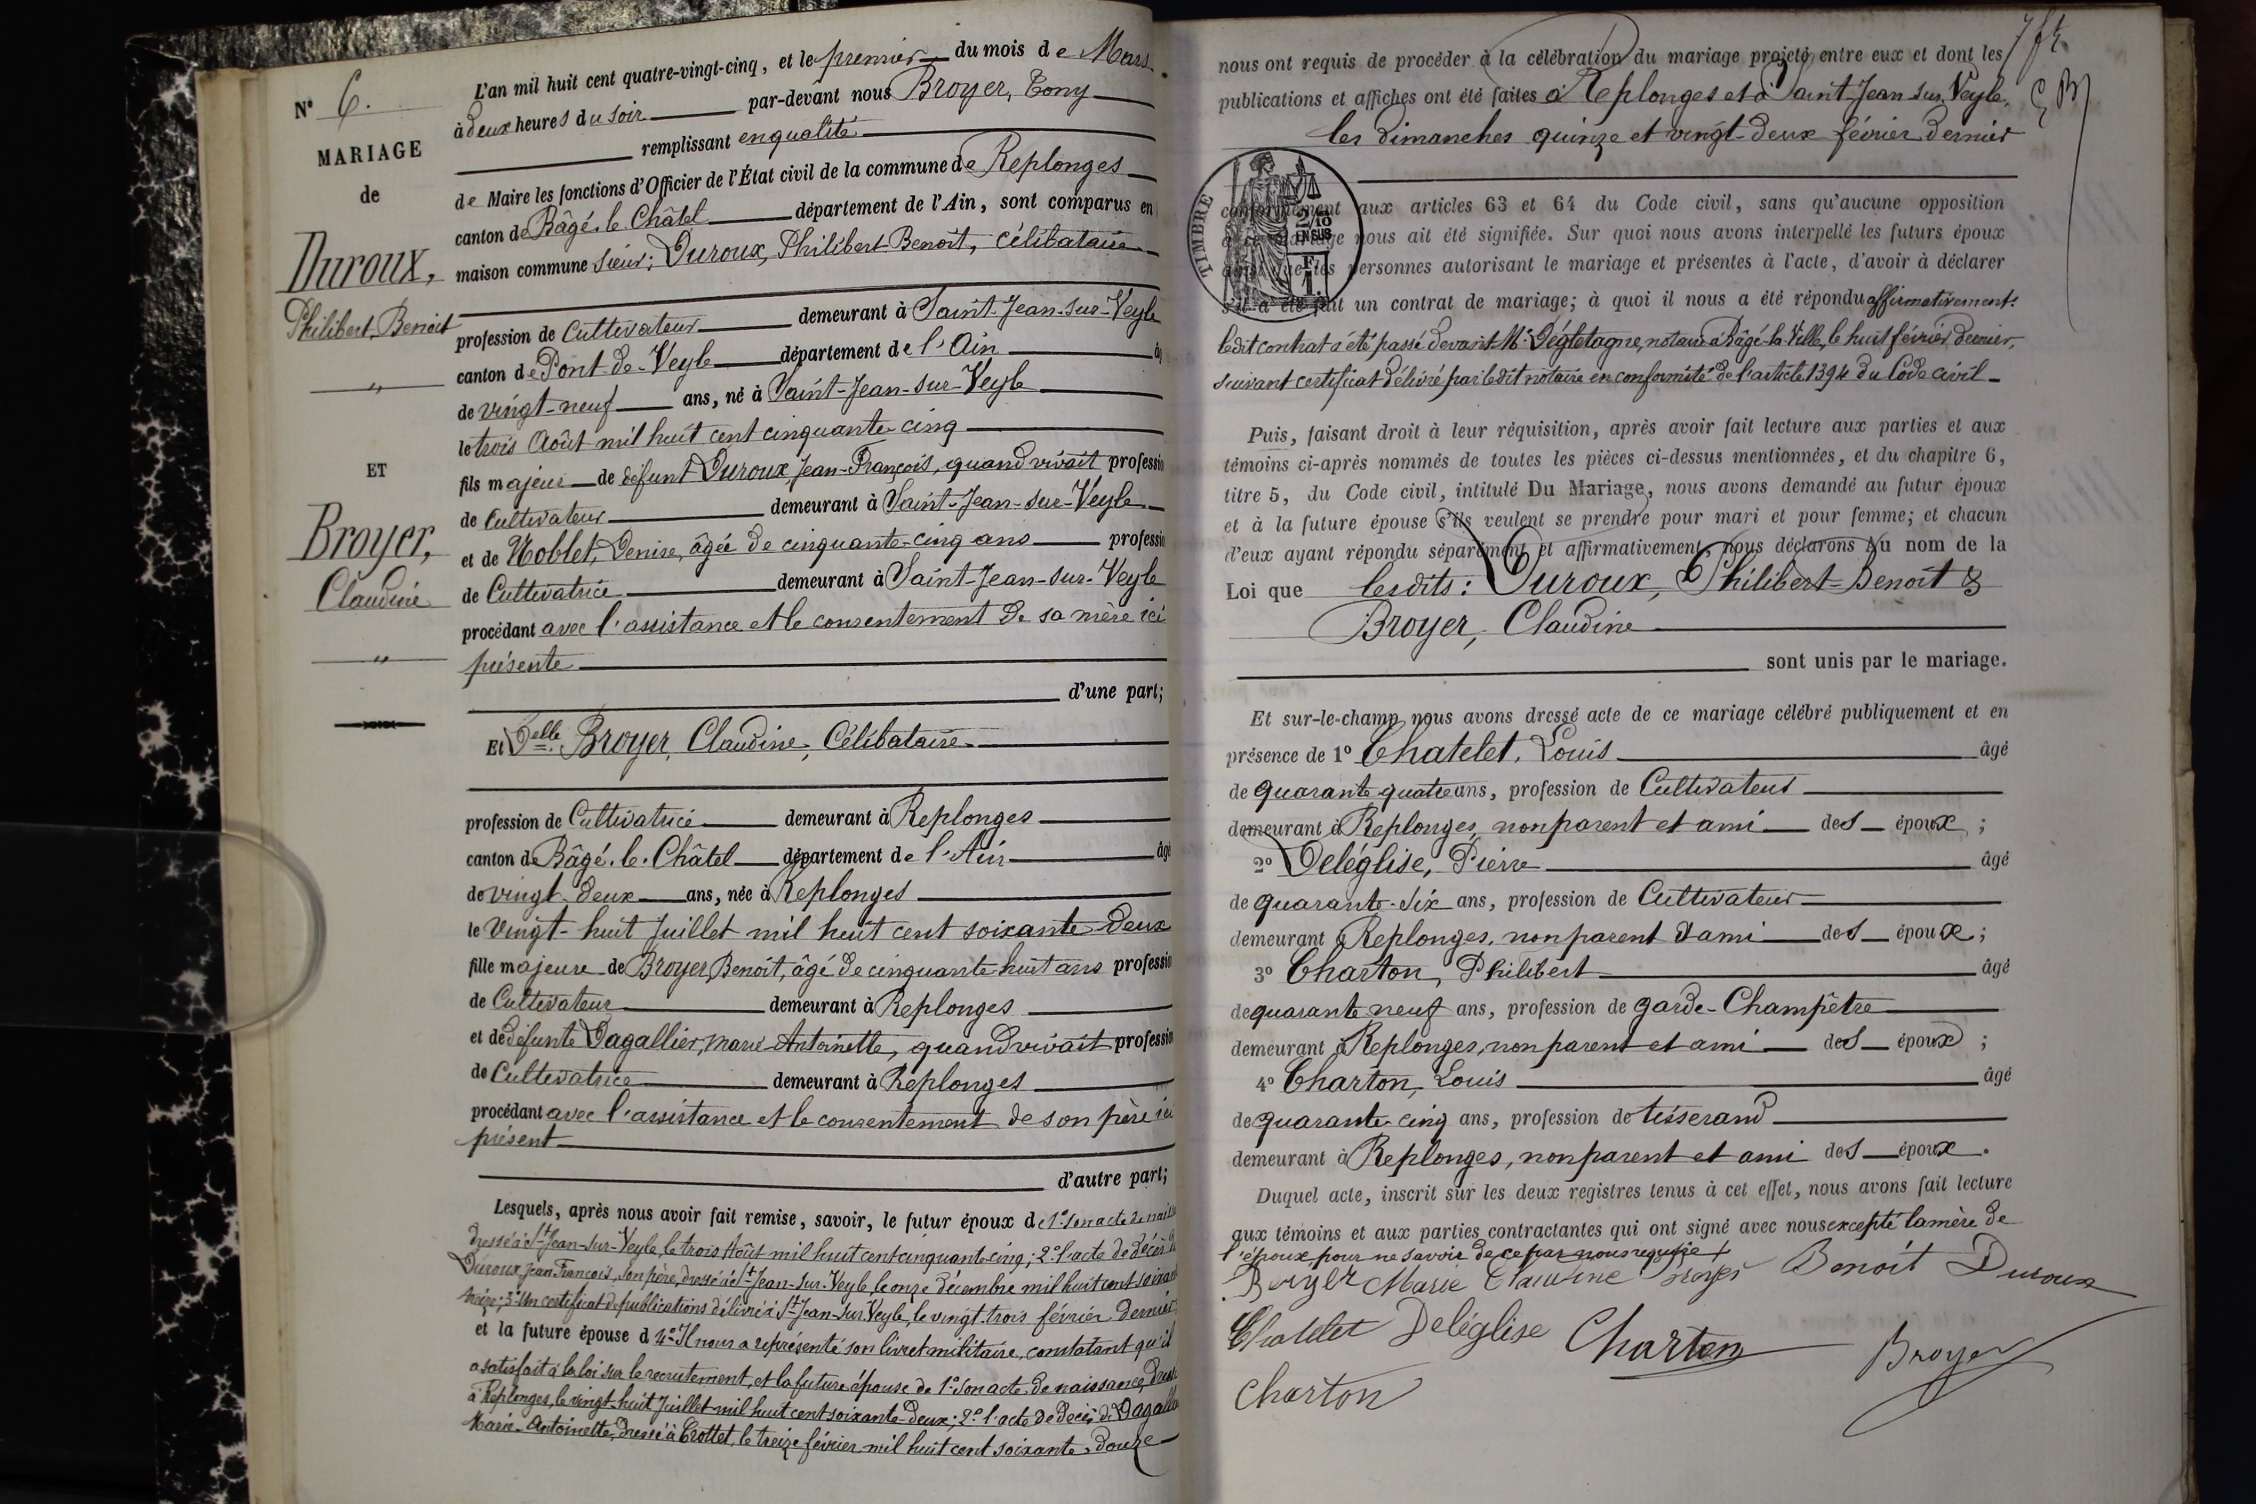 N° 6.
MARIAGE
de
Duroux,
Philibert-Benoit
"
ET
Broyer,
Claudine
"
L'an mil huit cent quatre-vingt-cinq, et le premier du mois de Mars
à deux heures du soir par-devant nous Broyer, Tony
remplissant en qualité
de Maire les fonctions d'Officier de l'État civil de la commune de Replonges
canton de Bâgé-le-Châtel département de l'Ain, sont comparus en
maison commune sieur: Duroux, Philibert-Benoit, Célibataire
profession de Cultivateur demeurant à Saint-Jean-sur-Veyle
canton de Pont-de-Veyle département de l'Ain âg
de vingt-neuf ans, né à Saint-Jean-sur-Veyle
le trois Août mil huit cent cinquante-cinq
fils majeur de défunt Duroux Jean-François, quand vivait professio
de Cultivateur demeurant à Saint-Jean-sur-Veyle
et de Noblet, Denise, âgée de cinquante-cinq ans professio
de Cultivatrice demeurant à Saint-Jean-sur-Veyle
procédant avec l'assistance et le consentement de sa mère ici
présente
d'une part;
Et Delle Broyer, Claudine, Célibataire
profession de Cultivatrice demeurant à Replonges
canton de Bâgé-le-Châtel département de l'Ain âgé
de vingt-deux ans, née à Replonges
le vingt-huit Juillet mil huit cent soixante-deux
fille majeure de Broyer, Benoit, âgé de cinquante huit ans professio
de Cultivateur demeurant à Replonges
et de défunte Dagallier, Marie-Antoinette, quand vivait professio
de Cultivatrice demeurant à Replonges
procédant avec l'assistance et le consentement de son père ici
présent
d'autre part;
Lesquels, après nous avoir fait remise, savoir, le futur époux de 1° son acte de
dressé à St-Jean-sur-Veyle, le trois Août mil huit cent cinquante-cinq; 2° l'acte de décès
Duroux, Jean François, son père, dressé à St-Jean-sur-Veyle, le onze décembre mil huit cent
3° Un certificat de publications délivré à St-Jean-sur-Veyle, le vingt-trois février dernier
et la future épouse d 4° Il nous a représenté son livret militaire, constatant qu'il
a satisfait à la loi sur le recrutement, et la future épouse de 1° Son acte de naissance,
à Replonges, le vingt-huit Juillet mil huit cent soixante-deux; 2° l'acte de décès de
Marie-Antoinette, dressé à Crottet, le treize février mil huit cent soixante-douze
nous ont requis de procéder à la célébration du mariage projeté entre eux et dont les
publications et affiches ont été faites à Replonges et à Saint-Jean-sur-Veyle,
les dimanches quinze et vingt-deux février dernier
TIMBRE
2/10
EN SUS
F
1.
conformément aux articles 63 et 64 du Code civil, sans qu'aucune opposition
à ce mariage nous ait été signifiée. Sur quoi nous avons interpellé les futurs époux
ainsi que les personnes autorisant le mariage et présentes à l'acte, d'avoir à déclarer
s'il a été fait un contrat de mariage; à quoi il nous a été répondu affirmativement.
ledit contrat a été passé devant Me Dégletagne, notaire à Bâgé-la-Ville, le huit février dernier,
suivant certificat délivré par ledit notaire en conformité de l'article 1394 du Code civil
Puis, faisant droit à leur réquisition, après avoir fait lecture aux parties et aux
témoins ci-après nommés de toutes les pièces ci-dessus mentionnées, et du chapitre 6,
titre 5, du Code civil, intitulé Du Mariage, nous avons demandé au futur époux
et à la future épouse s'ils veulent se prendre pour mari et pour femme; et chacun
d'eux ayant répondu séparément et affirmativement, nous déclarons au nom de la
Loi que lesdits: Duroux, Philibert-Benoit &
Broyer, Claudine
sont unis par le mariage.
Et sur-le-champ nous avons dressé acte de ce mariage célébré publiquement et en
présence de 1° Chatelet, Louis âgé
de quarante quatre ans, profession de Cultivateur
demeurant à Replonges, non parent et ami des époux;
2° Deléglise, Pierre âgé
de quarante-six ans, profession de Cultivateur
demeurant à Replonges, non parent & ami des époux;
3° Charton, Philibert âgé
de quarante neuf ans, profession de garde-Champêtre
demeurant à Replonges, non parent et ami des époux;
4° Charton, Louis âgé
de quarante-cinq ans, profession de tisserand
demeurant à Replonges, non parent et ami des époux.
Duquel acte, inscrit sur les deux registres tenus à cet effet, nous avons fait lecture
aux témoins et aux parties contractantes qui ont signé avec nous excepté la mère de
l'époux, pour ne savoir de ce par nous requise
Broyer Marie Claudine Broyer Benoit Duroux
Chatelet Deléglise Charton Broyer
Charton